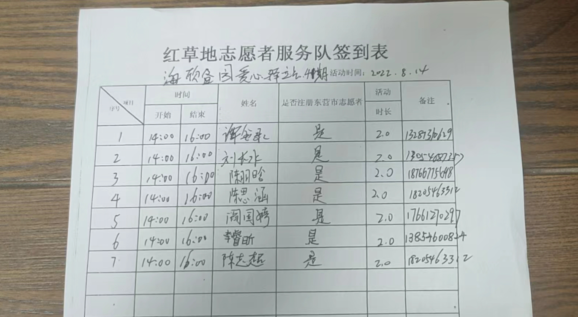 红草地志愿者服务队签到表
海欣 爱心驿站 活动时间：2022.8.14
序号 项目 时间 姓名 是否注册东营市志愿者 活动时长 备注
开始 结束
1 14:00 16:00 是 2.0
2 14:00 16:00 刘 是 2.0
3 14:00 16:00 陈羽晗 是 2.0 18766775698
4 14:00 16:00 陈思涵 是 2.0 18205463312
5 14:00 16:00 是 2.0 17661270297
6 14:00 16:00 李 是 2.0 13854600824
7 14:00 16:00 陈志超 是 2.0 18205463312